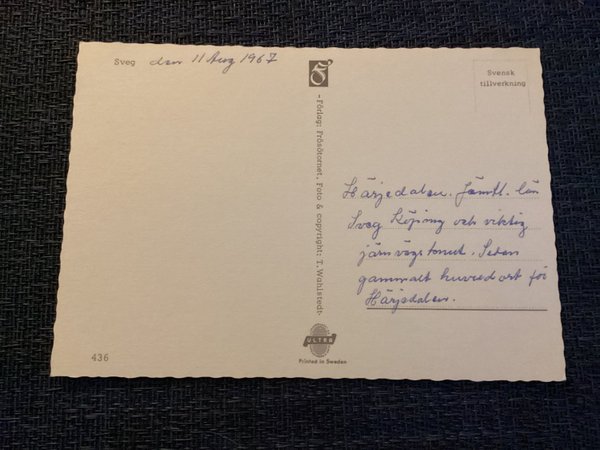 Sveg den 11 Aug 1967
Svensk
tillverkning
Förlag: Frösötornet. Foto & copyright: T. Wahlstedt.
Härjedalen. Jämtl. län
Sveg Köping och viktig
järnvägsknut. Sedan
gammalt huvudort för
Härjedalen.
ULTRA
Printed in Sweden
436